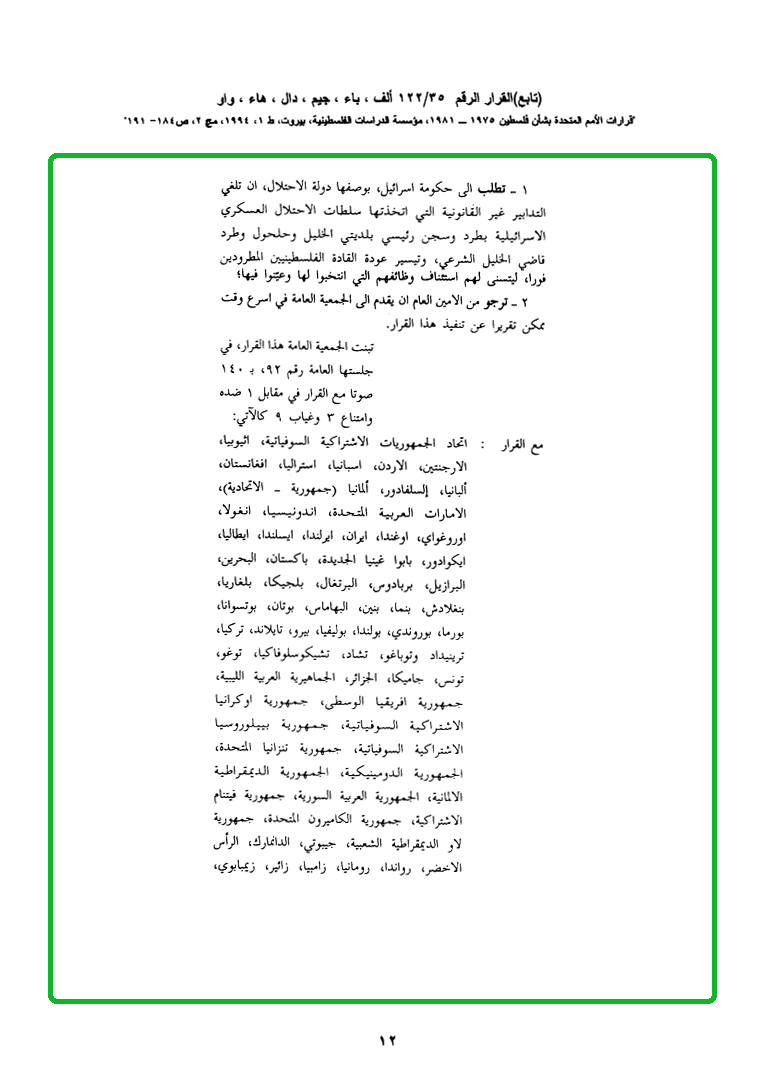 (تابع)القرار الرقم ١٢٢/٣٥ ألف ، باء ، جيم ، دال ، هاء ، واو
"قرارات الأمم المتحدة بشأن فلسطين ١٩٧٥ ــ ١٩٨١، مؤسسة الدراسات الفلسطينية، بيروت، ط ١، ١٩٩٤، مج ٢، ص١٨٤- ١٩١"
١ ــ تطلب الى حكومة اسرائيل، بوصفها دولة الاحتلال، ان تلغي
التدابير غير القانونية التي اتخذتها سلطات الاحتلال العسكري
الاسرائيلية بطرد وسجن رئيسي بلديتي الخليل وحلحول وطرد
قاضي الخليل الشرعي، وتيسير عودة القادة الفلسطينيين المطرودين
فورا، ليتسنى لهم استئناف وظائفهم التي انتخبوا لها وعيّنوا فيها؛
٢ ــ ترجو من الامين العام ان يقدم الى الجمعية العامة في اسرع وقت
ممكن تقريرا عن تنفيذ هذا القرار.
تبنت الجمعية العامة هذا القرار، في
جلستها العامة رقم ٩٢، بـ ١٤٠
صوتا مع القرار في مقابل ١ ضده
وامتناع ٣ وغياب ٩ كالآتي:
مع القرار : اتحاد الجمهوريات الاشتراكية السوفياتية، اثيوبيا،
الارجنتين، الاردن، اسبانيا، استراليا، افغانستان،
ألبانيا، إلسلفادور، ألمانيا (جمهورية ــ الاتحادية)،
الامارات العربية المتحدة، اندونيسيا، انغولا،
اوروغواي، اوغندا، ايران، ايرلندا، ايسلندا، ايطاليا،
ايكوادور، بابوا غينيا الجديدة، باكستان، البحرين،
البرازيل، بربادوس، البرتغال، بلجيكا، بلغاريا،
بنغلادش، بنما، بنين، البهاماس، بوتان، بوتسوانا،
بورما، بوروندي، بولندا، بوليفيا، بيرو، تايلاند، تركيا،
ترينيداد وتوباغو، تشاد، تشيكوسلوفاكيا، توغو،
تونس، جاميكا، الجزائر، الجماهيرية العربية الليبية،
جمهورية افريقيا الوسطى، جمهورية اوكرانيا
الاشتراكية السوفياتية، جمهورية بييلوروسيا
الاشتراكية السوفياتية، جمهورية تنزانيا المتحدة،
الجمهورية الدومينيكية، الجمهورية الديمقراطية
الالمانية، الجمهورية العربية السورية، جمهورية فيتنام
الاشتراكية، جمهورية الكاميرون المتحدة، جمهورية
لاو الديمقراطية الشعبية، جيبوتي، الدانمارك، الرأس
الاخضر، رواندا، رومانيا، زامبيا، زائير، زيمبابوي،
١٢